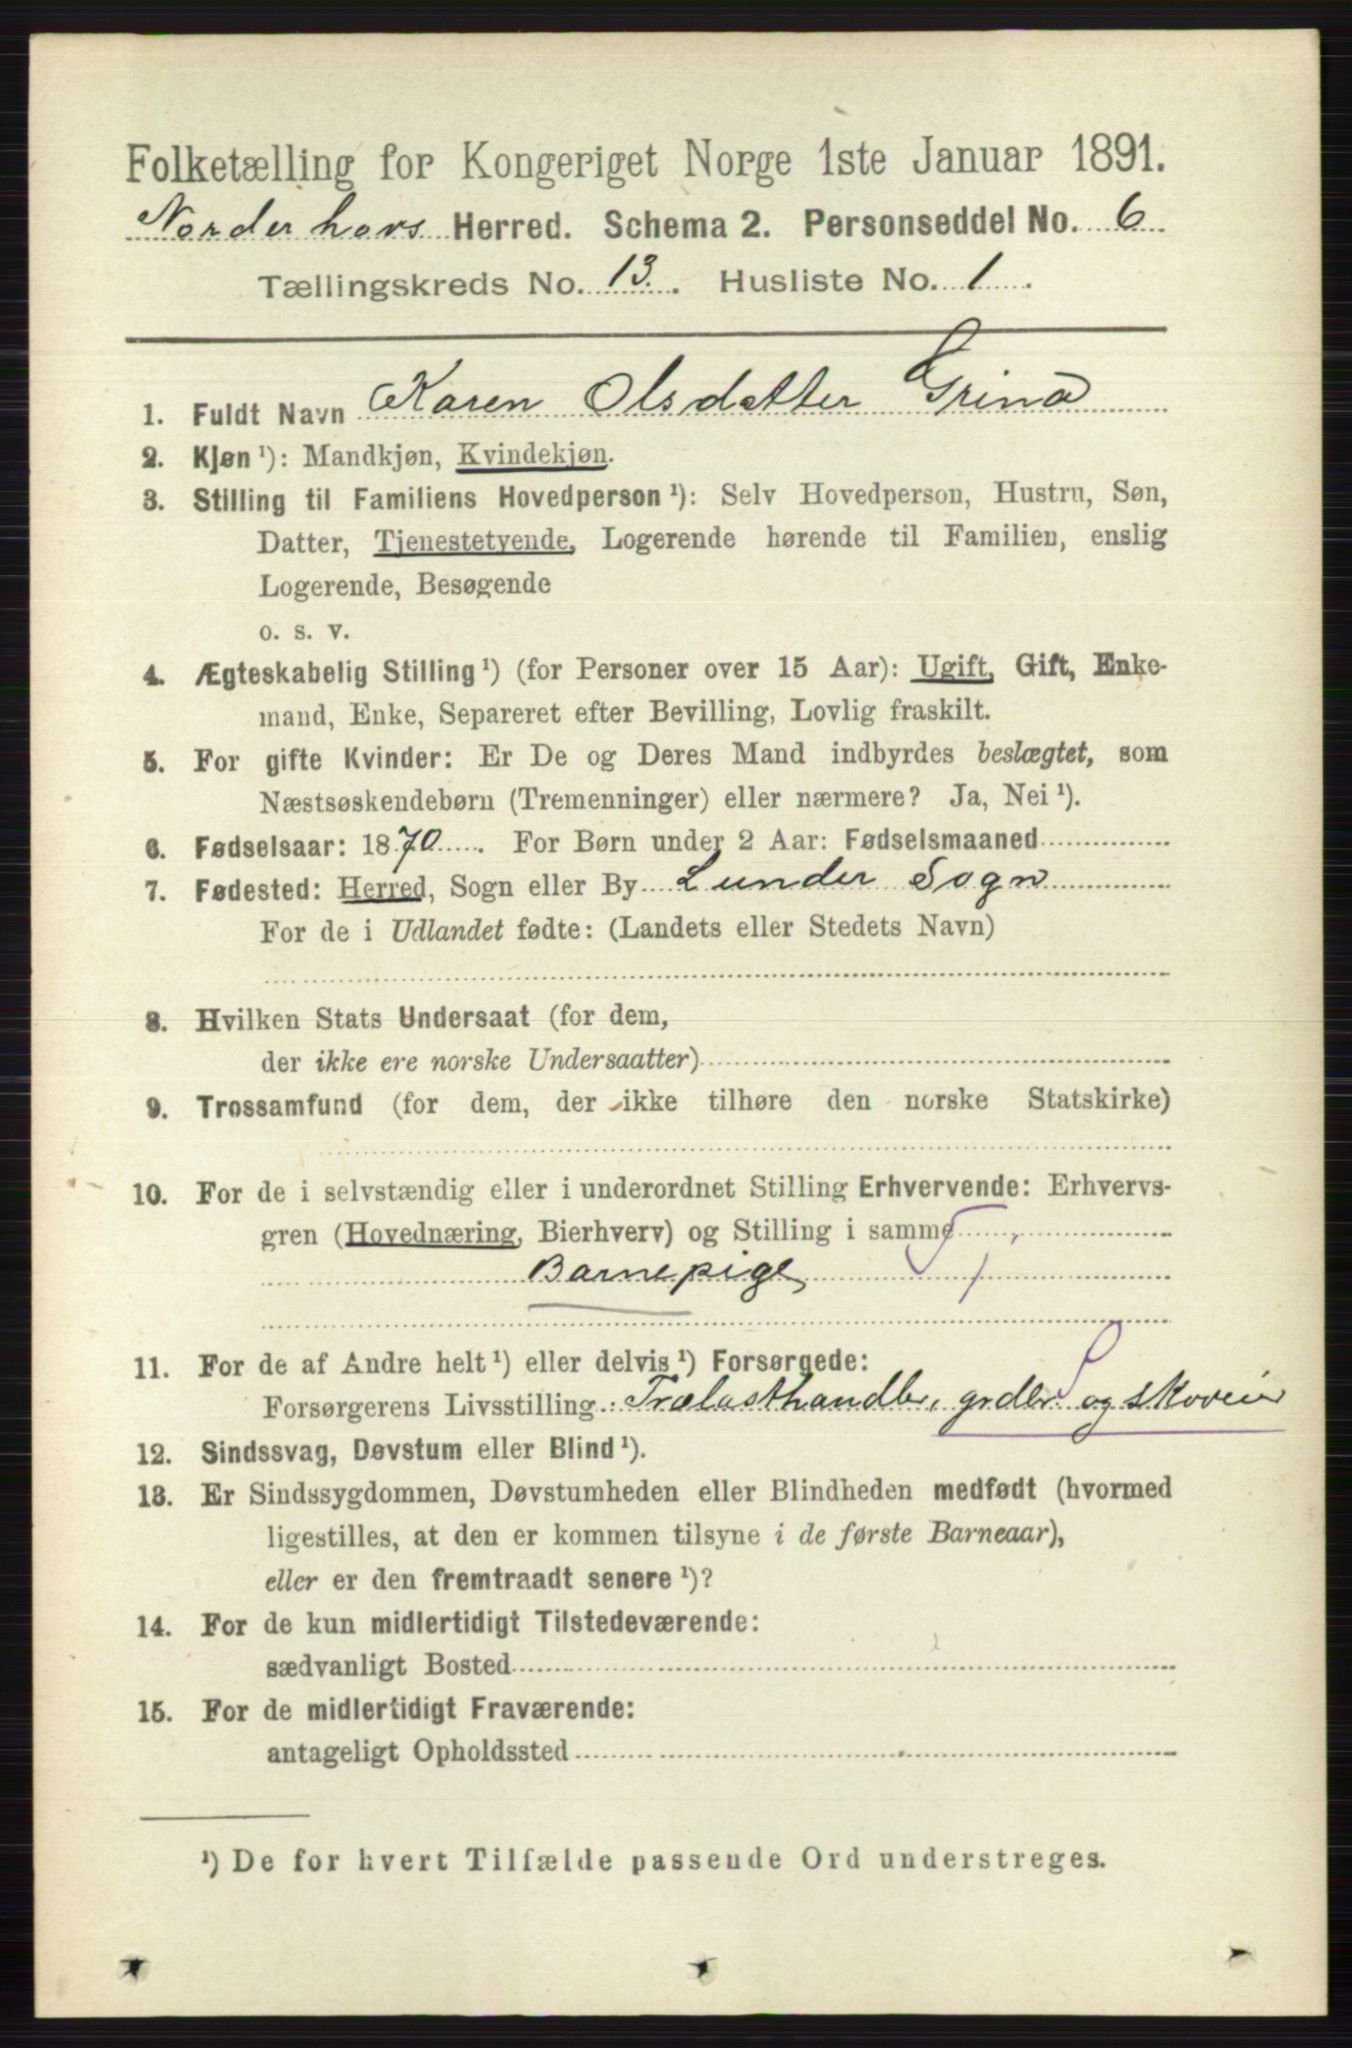 Folketælling for Kongeriget Norge 1ste Januar 1891.
Norderhovs Herred. Schema 2. Personseddel No. 6
Tællingskreds No. 13. Husliste No. 1.
1. Fuldt Navn Karen Olsdatter Grina
2. Kjøn ¹): Mandkjøn, Kvindekjøn.
3. Stilling til Familiens Hovedperson ¹): Selv Hovedperson, Hustru, Søn,
Datter, Tjenestetyende, Logerende hørende til Familien, enslig
Logerende, Besøgende
o. s. v.
4. Ægteskabelig Stilling ¹) (for Personer over 15 Aar): Ugift, Gift, Enke-
mand, Enke, Separeret efter Bevilling, Lovlig fraskilt.
5. For gifte Kvinder: Er De og Deres Mand indbyrdes beslægtet, som
Næstsøskendebørn (Tremenninger) eller nærmere? Ja, Nei ¹).
6. Fødselsaar: 1870. For Børn under 2 Aar: Fødselsmaaned
7. Fødested: Herred, Sogn eller By Lunder Sogn
For de i Udlandet fødte: (Landets eller Stedets Navn)
8. Hvilken Stats Undersaat (for dem,
der ikke ere norske Undersaatter)
9. Trossamfund (for dem, der ikke tilhøre den norske Statskirke)
10. For de i selvstændig eller i underordnet Stilling Erhvervende: Erhvervs-
gren (Hovednæring, Bierhverv) og Stilling i samme
Barnepige
11. For de af Andre helt ¹) eller delvis ¹) Forsørgede:
Forsørgerens Livsstilling: Trælasthandler, grdbr og skoveier
12. Sindssvag, Døvstum eller Blind ¹).
13. Er Sindssygdommen, Døvstumheden eller Blindheden medfødt (hvormed
ligestilles, at den er kommen tilsyne i de første Barneaar),
eller er den fremtraadt senere ¹)?
14. For de kun midlertidigt Tilstedeværende:
sædvanligt Bosted
15. For de midlertidigt Fraværende:
antageligt Opholdssted
¹) De for hvert Tilfælde passende Ord understreges.